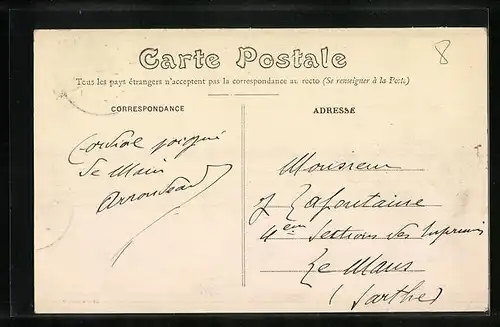 Carte Postale
Tous les pays étrangers n'acceptent pas la correspondance au recto (Se renseigner à la Poste)
8
CORRESPONDANCE
ADRESSE
Cordiale poignée
de Main
Monsieur
J Lafontaine
4em Sections des
Le Mans
(Sarthe)